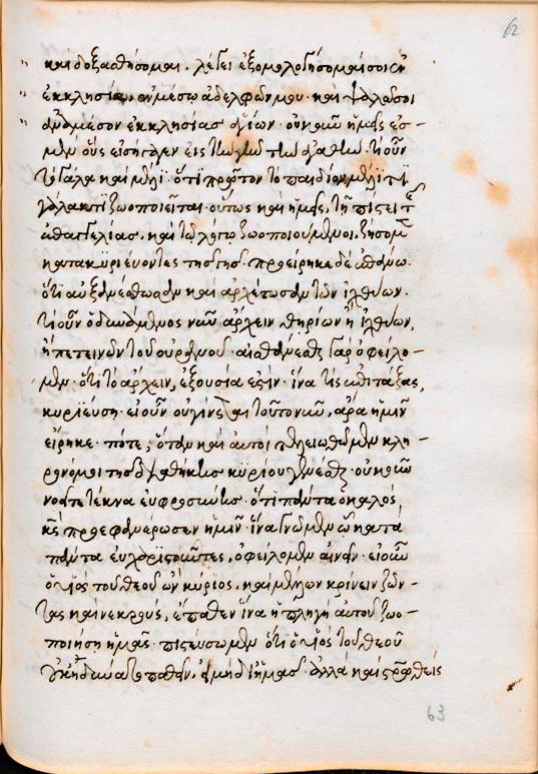 62
καὶ δοξασθήσομαι. λέγει ἐξομολογήσομαί σοι ἐν
ἐκκλησίᾳ, ἐν μέσῳ ἀδελφῶν μου· καὶ ψαλῶ σοι
ἀνάμεσον ἐκκλησίας ἁγίων· οὐκοῦν ἡμεῖς ἐσ-
μὲν οὓς εἰσήγαγεν εἰς τὴν γῆν τὴν ἀγαθήν. τί οὖν
τὸ γάλα καὶ μέλι; ὅτι πρῶτον τὸ παιδίον μέλιτι
γάλακτι ζωοποιεῖται· οὕτως καὶ ἡμεῖς, τῇ πίστει τῆς
ἐπαγγελίας, καὶ τῷ λόγῳ ζωοποιούμενοι, ζήσομεν
κατακυριεύοντες τῆς γῆς. προείρηκε δὲ ἐπάνω.
ὅτι αὐξανέσθωσαν καὶ ἀρχέτωσαν τῶν ἰχθύων.
τί οὖν ὁ δυνάμενος νῦν ἄρχειν θηρίων ἢ ἰχθύων,
ἢ πετεινῶν τοῦ οὐρανοῦ· αἰσθάνεσθαι γὰρ ὀφείλο-
μεν. ὅτι τὸ ἄρχειν, ἐξουσία ἐστίν· ἵνα τις ἐπιτάξας,
κυριεύσῃ· εἰ οὖν οὐ γίνεται τοῦτο νῦν, ἄρα ἡμῖν
εἴρηκε· πότε; ὅταν καὶ αὐτοὶ τελειωθῶμεν κλη-
ρονόμοι τῆς διαθήκης κυρίου γενέσθαι· οὐκοῦν
νοεῖτε τέκνα εὐφροσύνης· ὅτι πάντα ὁ καλὸς
κς προεφανέρωσεν ἡμῖν· ἵνα γνῶμεν ᾧ κατα
πάντα εὐχαριστοῦντες, ὀφείλομεν αἰνεῖν· εἰ οὖν
ὁ υἱὸς τοῦ θεοῦ ὢν κύριος, καὶ μέλλων κρίνειν ζῶν-
τας καὶ νεκροὺς, ἔπαθεν ἵνα ἡ πληγὴ αὐτοῦ ζωο-
ποιήσῃ ἡμᾶς· πιστεύσωμεν ὅτι ὁ υἱὸς τοῦ θεοῦ
οὐκ ἠδύνατο παθεῖν, εἰ μὴ δι ἡμᾶς· ἀλλὰ καὶ σταυρωθεὶς
63